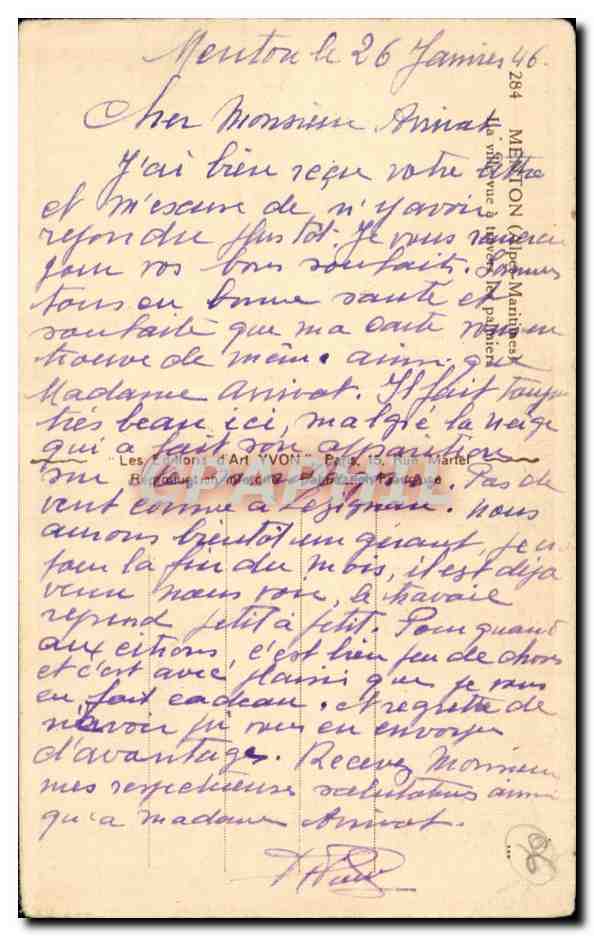 Menton le 26 Janvier 46.
Cher Monsieur Arrivat
J'ai bien reçu votre lettre
et m'excuse de n'y avoir
repondu plustôt. Je vous remercie
pour vos bons souhaits. Sommes
tous en bonne sante et
souhaite que ma carte vous
trouve de même. ainsi que
Madame Arrivat. Il fait toujours
très beau ici, malgré la neige
qui a fait son apparition
sur Pas de
vent comme à Lezignan. nous
aurons bientôt un gérant,
pour la fin du mois, il est déjà
venu nous voir, le travail
reprend petit à petit. Pour quant
aux citrons, c'est bien peu de chose
et c'est avec plaisir que je vous
en fait cadeau. et regrette de
n'avoir pu vous en envoyer
d'avantages. Recevez Monsieur
mes respectueuses salutations ainsi
qu'a madame Arrivat.
284 MENTON (Alpes-Maritimes)
La ville vue à travers le palmier
"Les Editions d'Art YVON" Paris, 15, Rue Martel
Reproduction interdite Fabrication Française
CPAPHIL
06